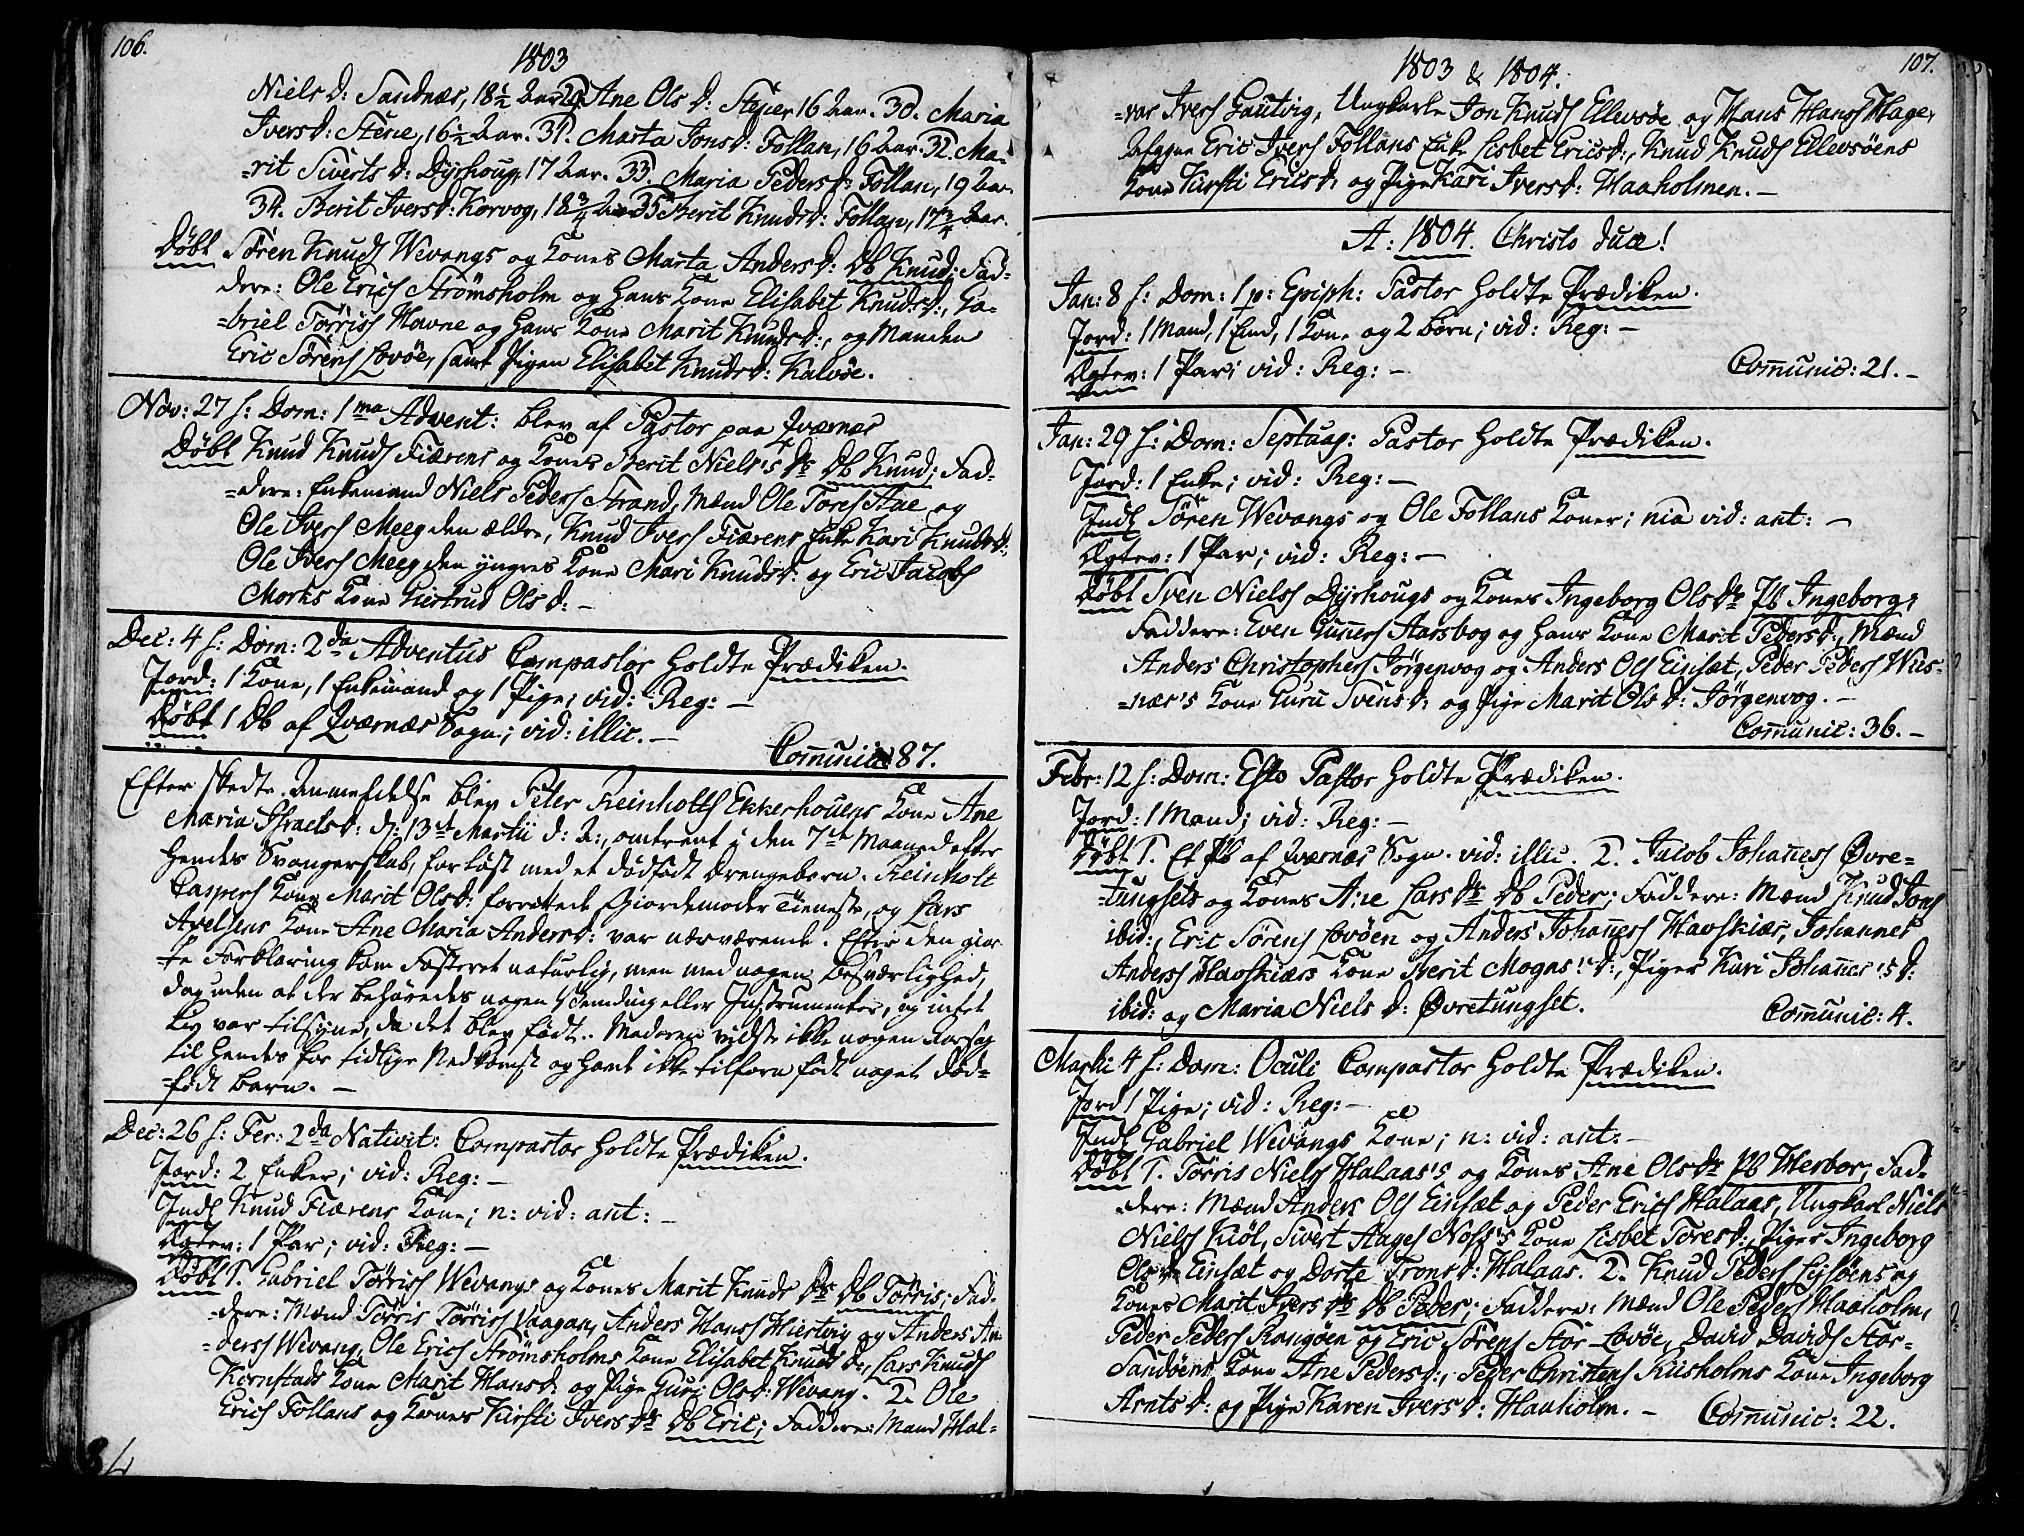 106.
1803
Niels d: Sandnæs, 18½ Aar 29. Ane Ols d: Steyer 16 Aar. 30. Maria
Ivers d: Sterie, 16½ Aar. 31. Marta Jons d: Follan, 16 Aar. 32. Ma-
=rit Siverts d: Dyrhoug, 17 Aar. 33. Maria Peders d: Follan, 19 Aar.
34. Berit Ivers d: Korvog, 18¾ Aar 35 Berit Knuds d: Follan, 17¾ Aar.
Døbt Sören Knuds Wevangs og Kones Marta Anders d: Db Knud; Fad-
dere: Ole Erics Strömsholm og hans Kone Elisabet Knuds d:, Ga-
=briel Törriss Hovne og hans Kone Marit Knuds d:, og Manden
Eric Sörens Lovöe, samt Pigen Elisabet Knuds d: Kalvöe.
Nov: 27 f: Dom: 1ma Advent: blev af Pastor paa Qværnæs
Døbt Knud Knuds Fiærens og Kones Berit Niels's ds Db Knud; Fad-
=dere: Enkemand Niels Peders Strand, Mænd Ole Tores Aae og
Ole Ivers Meeg den ældre, Knud Ivers Fiærens Enke Kari Knuds d:,
Ole Ivers Meeg den yngres Kone Mari Knuds d: og Eric Jacobs
Morks Kone Giertrud Ols d: -
Dec: 4 f: Dom: 2da Adventus Compastor holdte Prædiken.
Jord: 1 Kone, 1 Enkemand og 1 Pige; vid: Reg: -
Døbt 1 Db af Qværnæs Sogn; vid: illic. -
Communic: 87.
Efter skedte Anmeldelse blev Peter Reinholts Ekkerhouens Kone Ane
Maria Israels d: d: 13de Martii d: A:, omtrent i den 7de Maaned efter
hendes Svangerskab, forløst med et dødfødt Drengebarn. Reinholt
Caspers Kone Marit Ols d: forrettede Giordemoder Tieneste, og Lars
Axelsens Kone Ane Maria Anders d: var nærværende. Efter den gior-
te Forklaring kom Fosteret naturlig, men med nogen Besværlighed,
dog uden at der behøvedes nogen Vending eller Instrumenter, og intet
Liv var tilsyne, da det blev født. Moderen vidste ikke nogen Aarsag
til hendes for tidlige Nedkomst og havt ikke tilforn født noget død-
=født Barn. -
Dec: 26 f: Fer: 2da Nativit: Compastor holdte Prædiken.
Jord: 2 Enker; vid: Reg: -
Indl Knud Fiærens Kone; n: vid: ant: -
Ægtev: 1 Par; vid: Reg: -
Døbt 1. Gabriel Törriss Wevangs og Kones Marit Knuds ds Db Törris; Fad-
=dere: Mænd Törris Törriss Vaagan, Anders Hans Hiertvig og Anders An-
=ders Wevang, Ole Erics Strömsholms Kone Elisabet Knuds d:, Lars Knuds
Kornstads Kone Marit Hans d: og Pige Guri Ols d: Wevang. 2. Ole
Erics Follans og Kones Kirsti Ivers ds Db Eric; Faddere: Mand Hal-
107.
1803 & 1804.
=vor Ivers Gautvig, Ungkarle Jon Knuds Ellevsöe og Hans Hans Hage,
Afggne Eric Ivers Follans Enke Lisbet Erics d:, Knud Knuds Ellevsöens
Kone Kirsti Erics d: og Pige Kari Ivers d: Haaholmen. -
A: 1804. Christo duce!
Jan: 8 f: Dom: 1 p: Epiph: Pastor holdte Prædiken.
Jord: 1 Mand, 1 Enkd, 1 Kone og 2 Börn; vid: Reg: -
Ægtev: 1 Par; vid: Reg: -
Communic: 21. -
Jan: 29 f: Dom: Septuag: Pastor holdte Prædiken.
Jord: 1 Enke; vid: Reg: -
Indl Sören Wevangs og Ole Follans Koner; nia vid: ant: -
Ægtev: 1 Par; vid: Reg: -
Døbt Sven Niels Dyrhougs og Kones Ingeborg Ols ds Pb Ingeborg;
Faddere: Even Gunners Aarsbog og hans Kone Marit Peders d:, Mænd
Anders Christophers Jörgenvog og Anders Ols Einsæt, Peder Peders Wus-
=nær's Kone Guru Svens d: og Pige Marit Ols d: Jörgenvog. -
Communic: 36. -
Febr: 12 f: Dom: Esto Pastor holdte Prædiken.
Jord: 1 Mand; vid: Reg: -
Døbt 1. Et Pb af Qværnæs Sogn. vid: illic. 2. Jacob Johanness Øvre-
=tungsets og Kones Ane Lars ds Db Peder; Faddere: Mænd Knud Jons
ibid:, Eric Sörens Lovöen og Anders Johanness Havskiær, Johannes
Anders Havskiærs Kone Berit Mogns's d:, Piger Kari Johannes's d:
ibid: og Maria Niels d: Øvretungset.
Communic: 4.
Martii 4 f: Dom: Oculi Compastor holdte Prædiken.
Jord 1 Pige; vid: Reg: -
Indl Gabriel Wevangs Kone; n: vid: ant: -
Døbt 1. Törris Niels Halaas's og Kones Ane Ols ds Pb Herbor; Fad-
=dere: Mænd Anders Ols Einsæt og Peder Erics Halaas, Ungkarl Niels
Niels Kiöl, Sivert Aages Nols's Kone Lisbet Tores d:, Piger Ingeborg
Ols d: Einsæt og Dorte Trons d: Halaas. 2. Knud Peders Lysöens og
Kones Marit Ivers ds Db Peder; Faddere: Mænd Ole Peders Haaholm,
Peder Peders Rangöen og Eric Sörens Stor-Lovöe, David Davids Stor-
Sandöens Kone Ane Peders d:, Peder Christens Kusholms Kone Ingeborg
Arnts d: og Pige Karen Ivers d: Haaholm. -
Communic: 22.